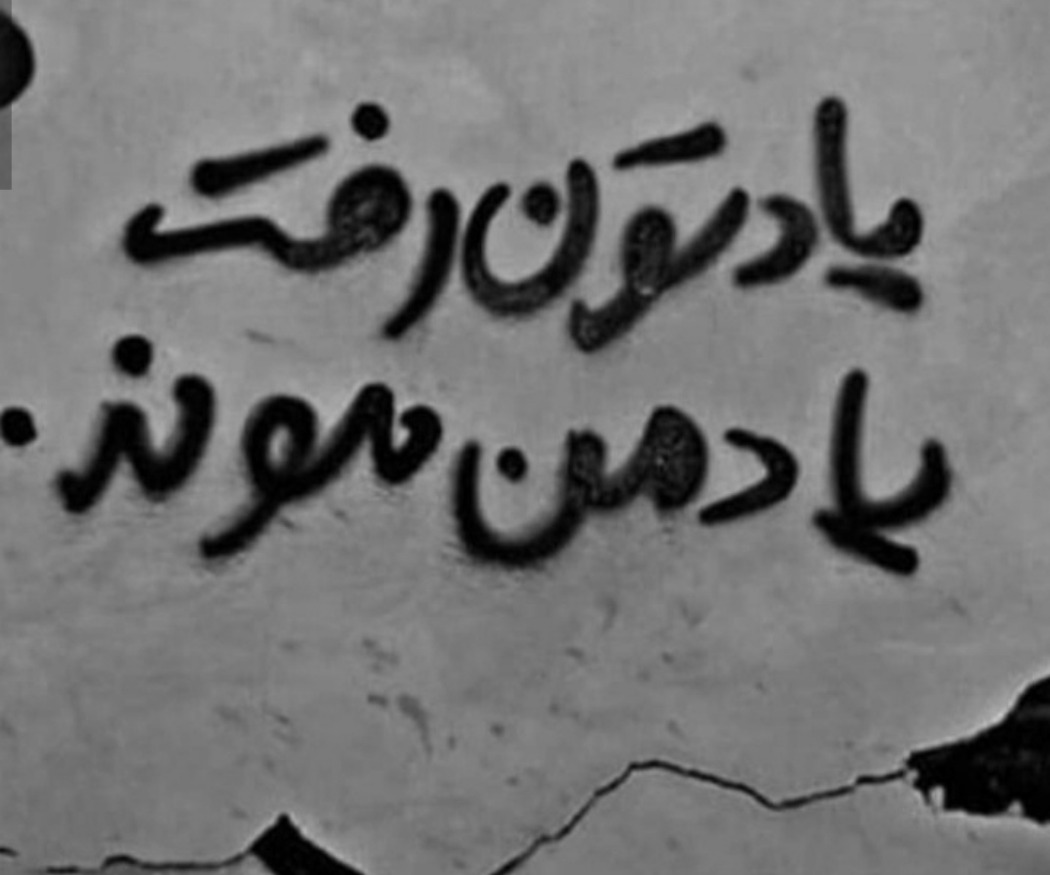 یادتون رفت
یاد من موند.